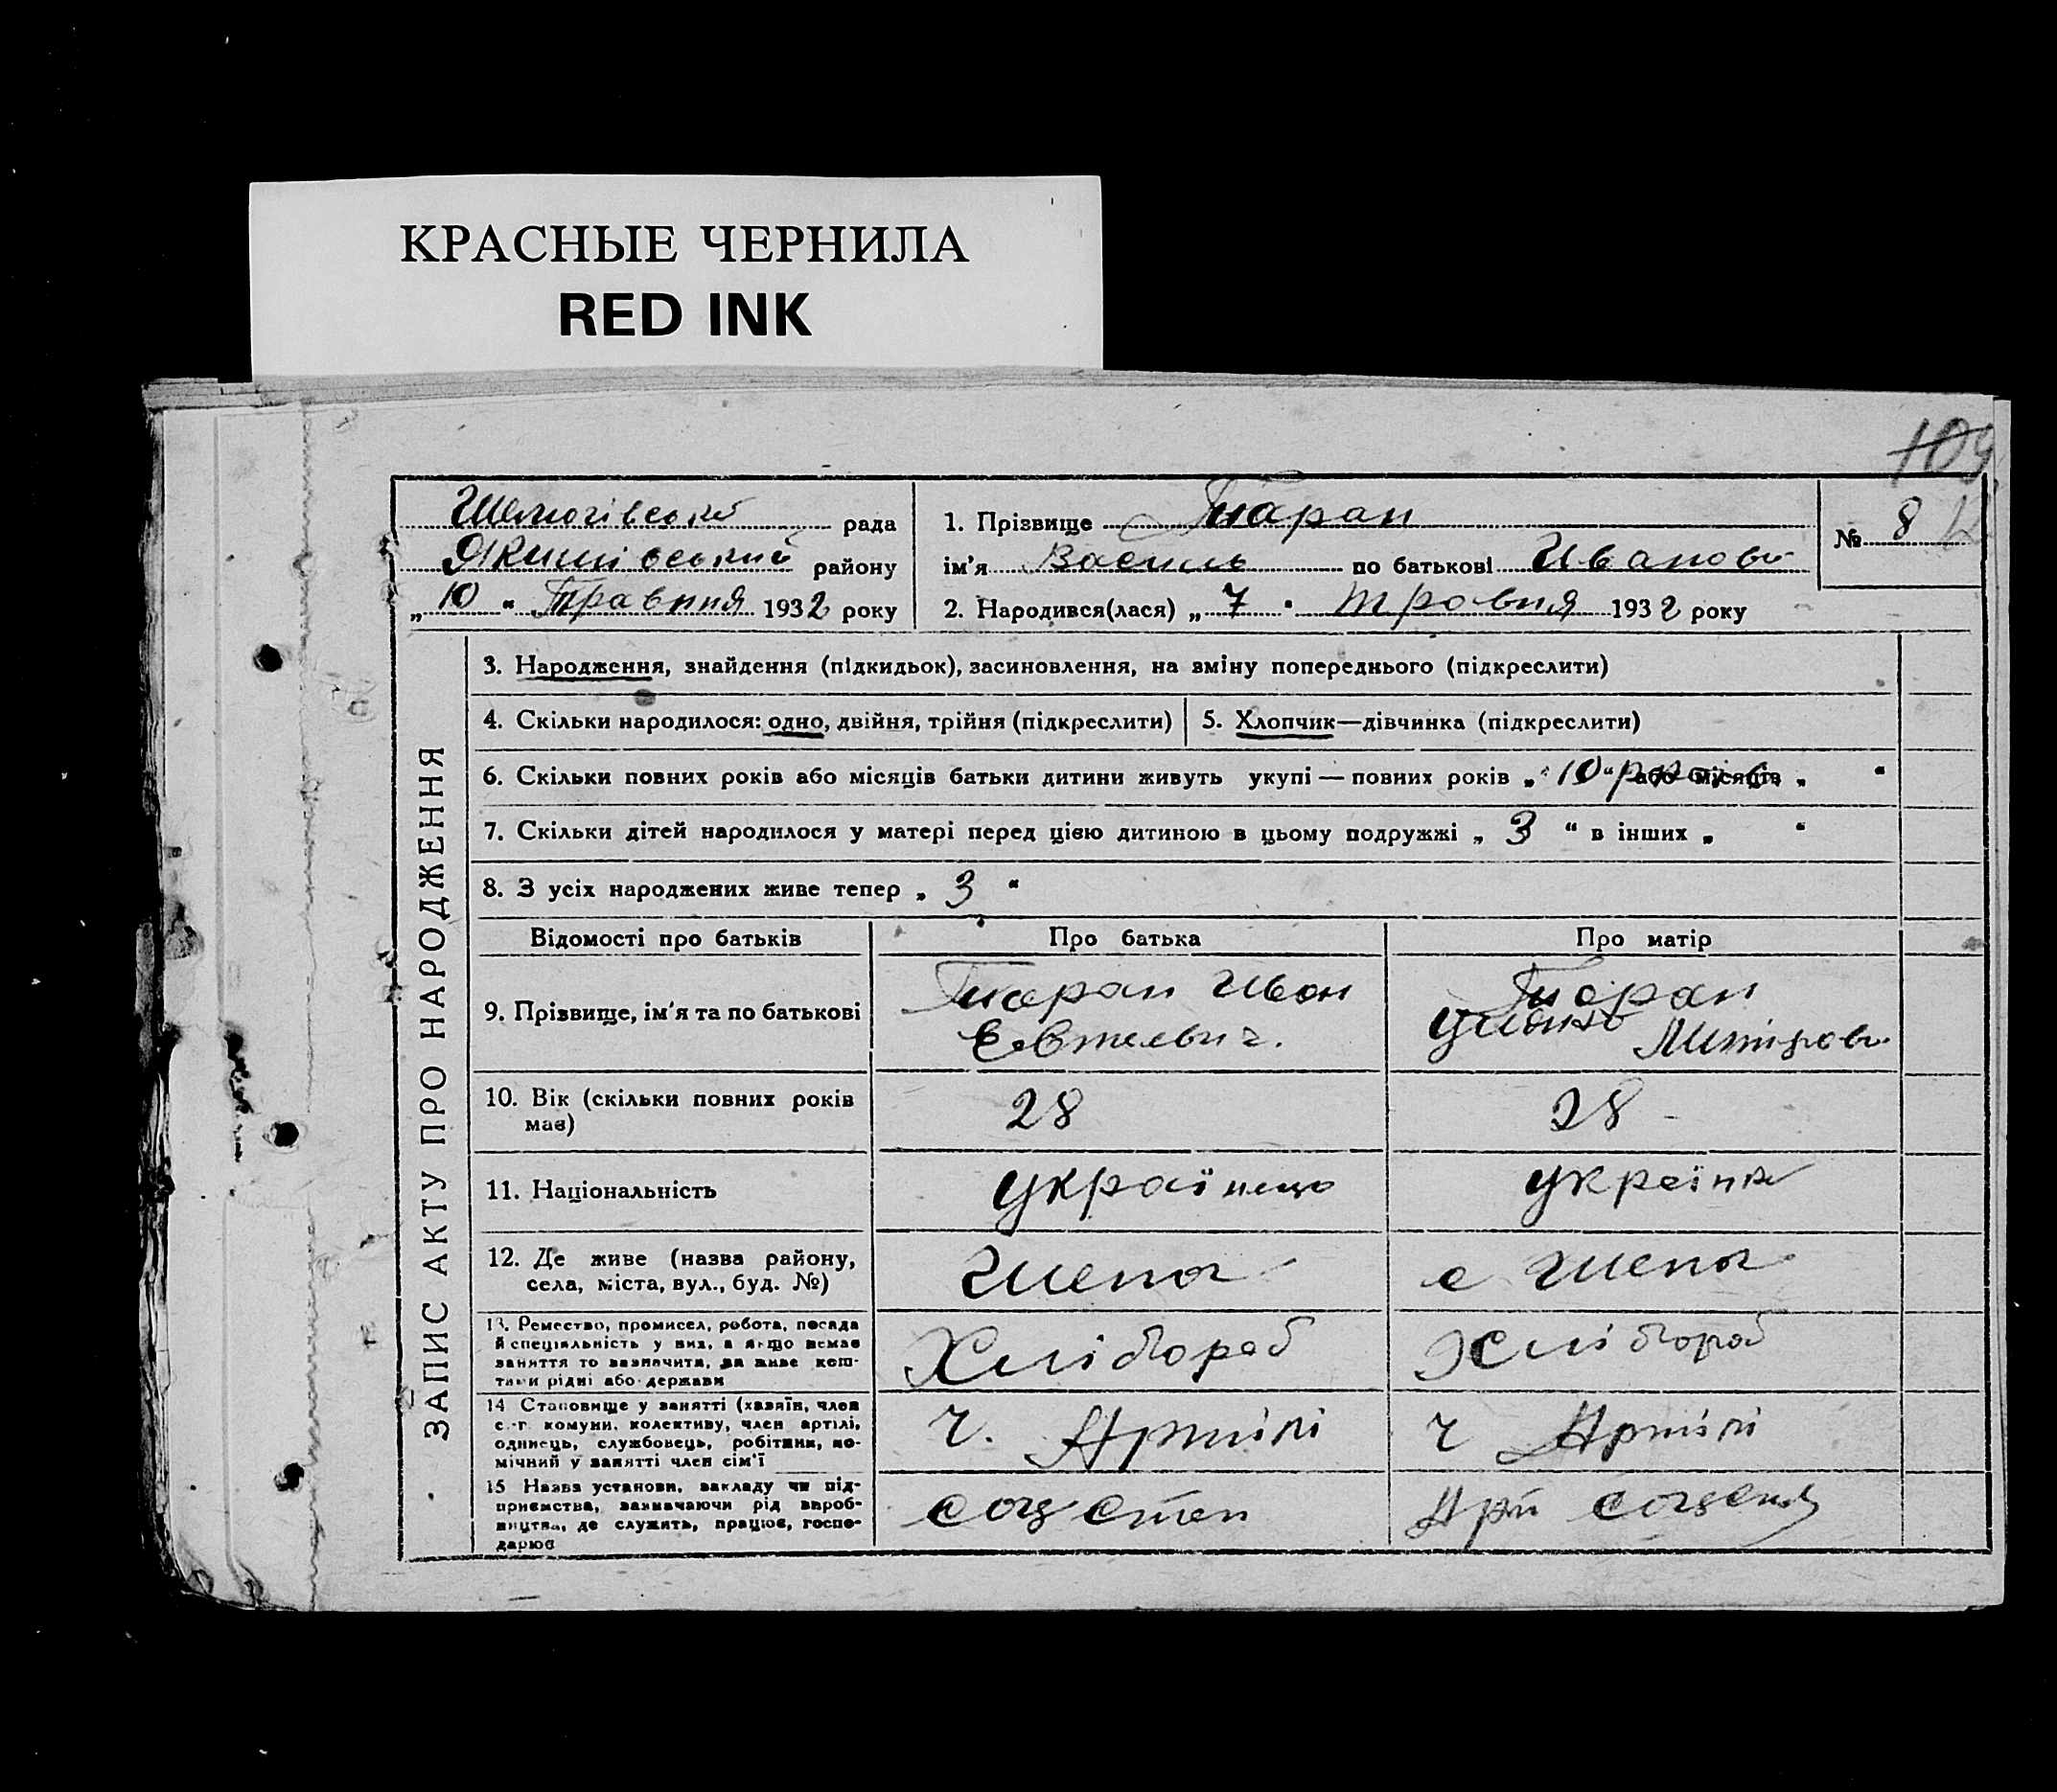 КРАСНЫЕ ЧЕРНИЛА
RED INK
109
рада
Якимівський району
„ 10 “ Травня 1932 року
1. Прізвище Таран
ім'я Василь по батькові Иванови
2. Народився(лася) „ 7 “ травня 1932 року
№ 8
ЗАПИС АКТУ ПРО НАРОДЖЕННЯ
3. Народження, знайдення (підкидьок), засиновлення, на зміну попереднього (підкреслити)
4. Скільки народилося: одно, двійня, трійня (підкреслити)
5. Хлопчик—дівчинка (підкреслити)
6. Скільки повних років або місяців батьки дитини живуть укупі — повних років „ 10 “ або місяців „ “
7. Скільки дітей народилося у матері перед цією дитиною в цьому подружжі „ 3 “ в інших „ “
8. З усіх народжених живе тепер „ 3 “
Відомості про батьків Про батька Про матір
9. Прізвище, ім'я та по батькові
Таран Иван
Таран
10. Вік (скільки повних років має)
28
28
11. Національність
українець
україн
12. Де живе (назва району,
села, міста, вул., буд. №)
13. Ремество, промисел, робота, посада
й спеціяльність у них, а якщо немає
заняття то зазначити, за чиве кош-
тами рідні або держави
Хлібороб
Хлібороб
14 Становище у занятті (хазяїн, член
с.-г. комуни, колективу, член артілі,
одинець, службовець, робітник, по-
мічний у занятті член сім'ї
ч. Артілі
ч Артілі
15 Назва установи, закладу чи під-
приємства, зазначаючи рід вироб-
ництва, де служить, працює, госпо-
дарює
соц степ